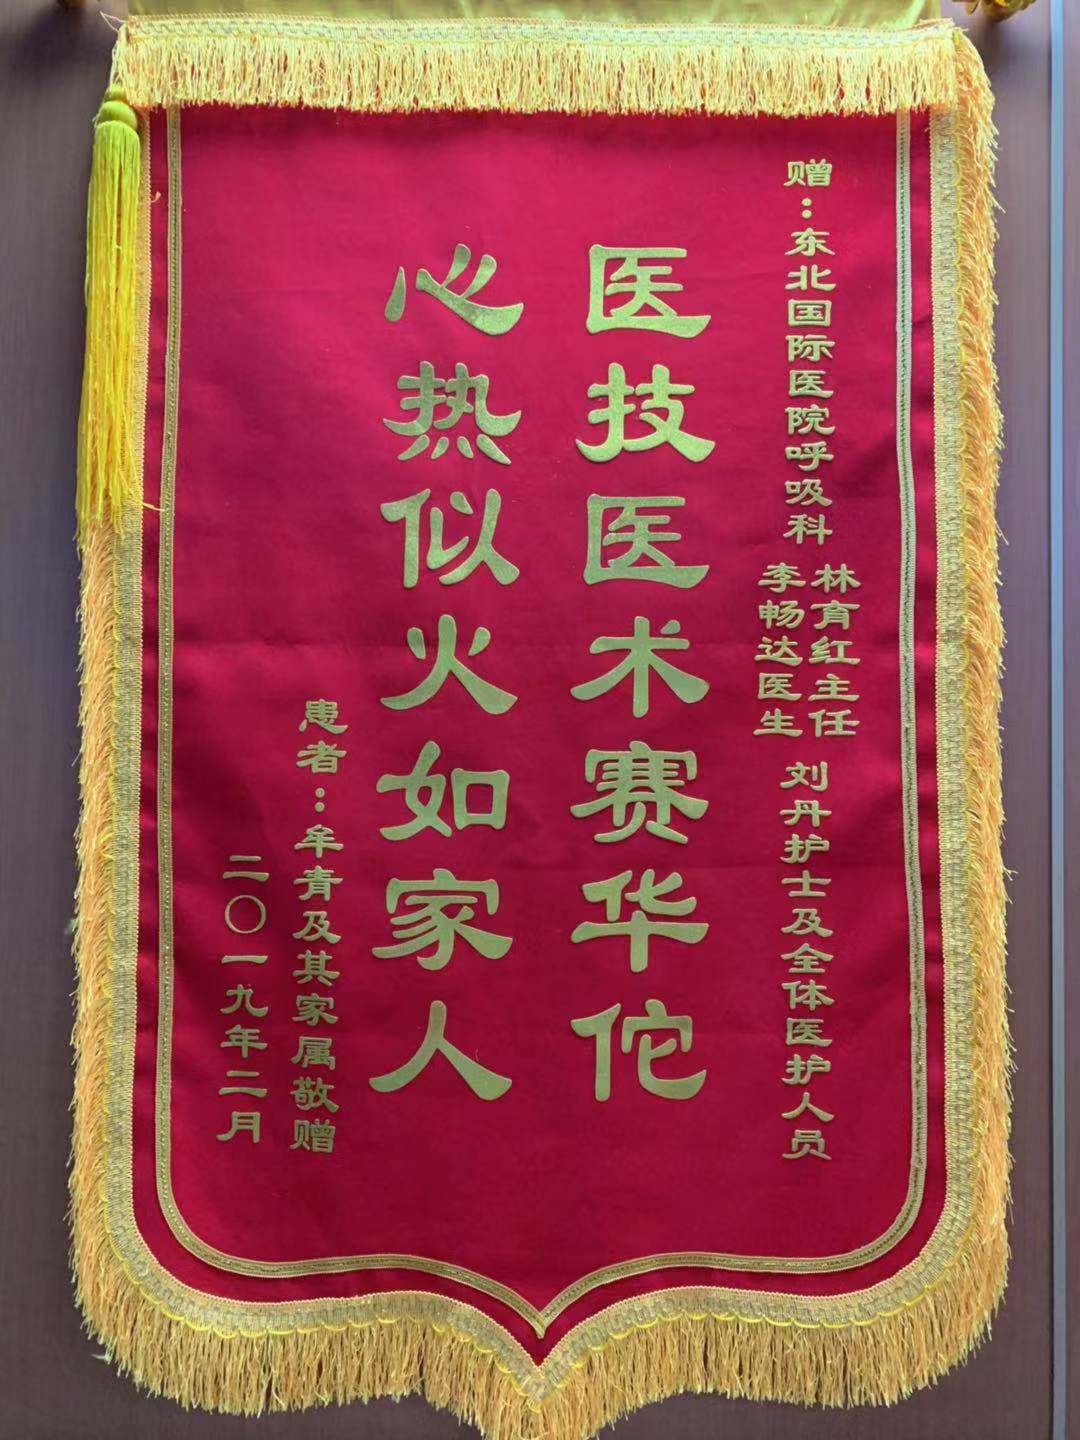 赠：东北国际医院呼吸科 林育红主任 李畅达医生 刘丹护士及全体医护人员
医技医术赛华佗
心热似火如家人
患者：牟青及其家属敬赠
二〇一九年二月